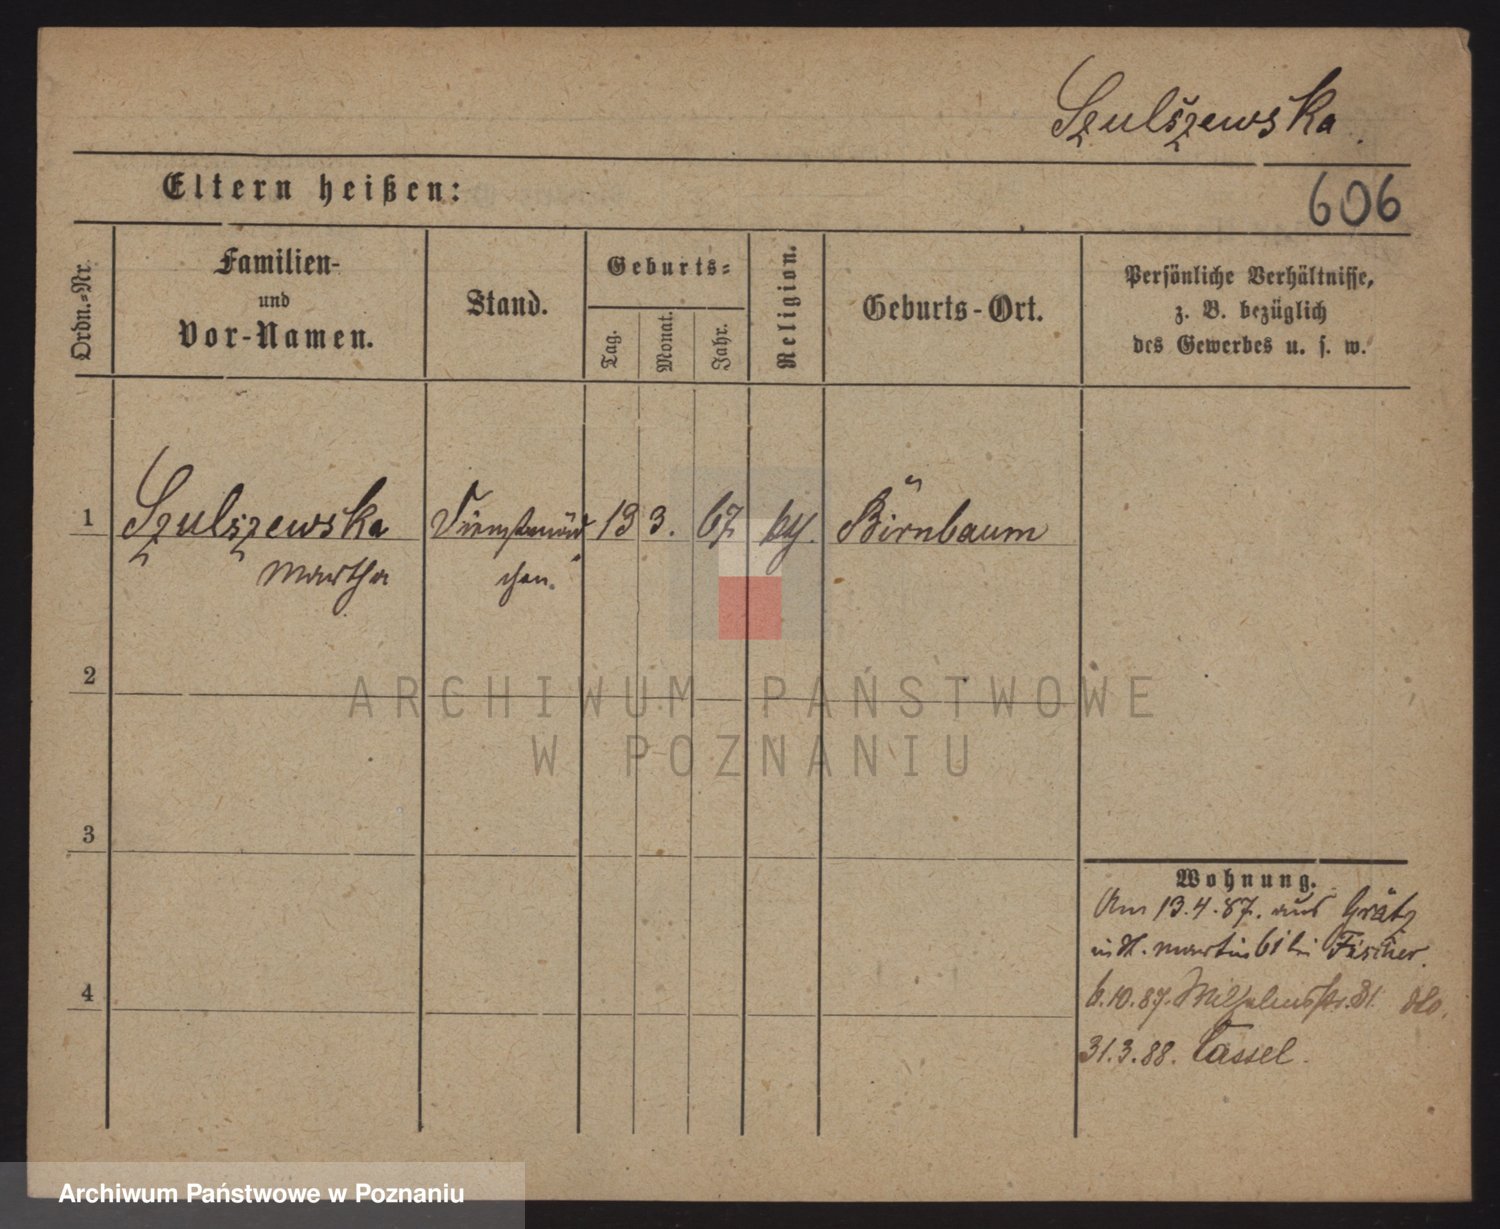 Szulszewska.
Eltern heißen:
606
Ordn.-Nr.
Familien-
und
Vor-Namen.
Stand.
Geburts-
Tag.
Monat.
Jahr.
Religion.
Geburts-Ort.
Persönliche Verhältnisse,
z. B. bezüglich
des Gewerbes u. s. w.
1 Szulszewska Dienstmäd 13 3. 67 Birnbaum
Martha chen.
2
ARCHIWUM PAŃSTWOWE
W POZNANIU
3
Wohnung.
Am 13.4.87. aus Grätz
St. Martin 61 bei Fischer.
4
6.10.87. Wilhelmsstr.
31.3.88. Cassel.
Archiwum Państwowe w Poznaniu